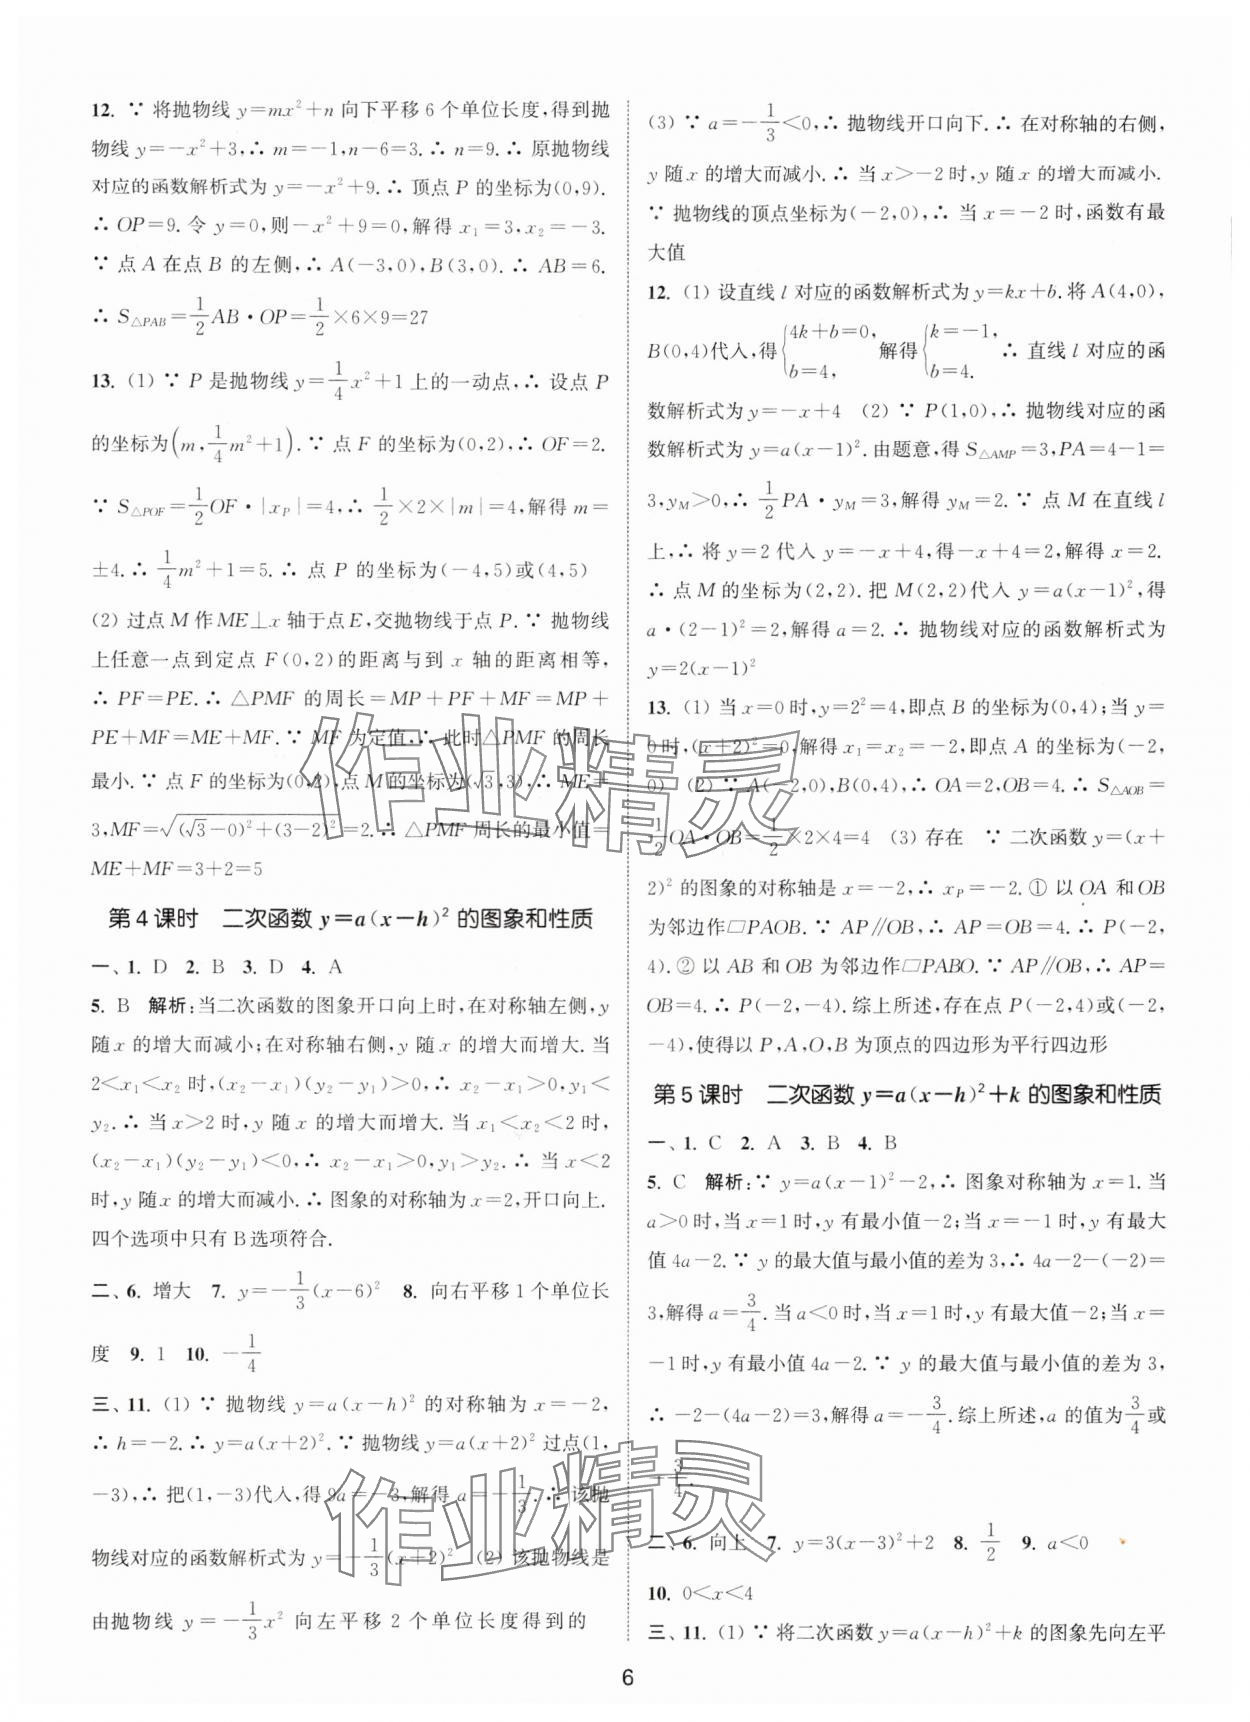 12. ∵ 将抛物线 y=mx²+n 向下平移 6 个单位长度,得到抛
物线 y=-x²+3,∴ m=-1,n-6=3.∴ n=9.∴ 原抛物线
对应的函数解析式为 y=-x²+9.∴ 顶点 P 的坐标为(0,9).
∴ OP=9.令 y=0,则-x²+9=0,解得 x₁=3,x₂=-3.
∵ 点 A 在点 B 的左侧,∴ A(-3,0),B(3,0).∴ AB=6.
∴ S△PAB=1/2AB·OP=1/2×6×9=27
13. (1) ∵ P 是抛物线 y=1/4x²+1 上的一动点,∴ 设点 P
的坐标为(m,1/4m²+1).∵ 点 F 的坐标为(0,2),∴ OF=2.
∵ S△POF=1/2OF·|xP|=4,∴ 1/2×2×|m|=4,解得 m=
±4.∴ 1/4m²+1=5.∴ 点 P 的坐标为(-4,5)或(4,5)
(2) 过点 M 作 ME⊥x 轴于点 E,交抛物线于点 P.∵ 抛物线
上任意一点到定点 F(0,2)的距离与到 x 轴的距离相等,
∴ PF=PE.∴ △PMF 的周长=MP+PF+MF=MP+
PE+MF=ME+MF.∵ MF 为定值,∴ 此时△PMF 的周长
最小.∵ 点 F 的坐标为(0,2),点 M 的坐标为(√3,3),∴ ME=
3,MF=√((√3-0)²+(3-2)²)=2.∴ △PMF 周长的最小值=
ME+MF=3+2=5
第 4 课时 二次函数 y=a(x-h)² 的图象和性质
一、1. D 2. B 3. D 4. A
5. B 解析:当二次函数的图象开口向上时,在对称轴左侧,y
随 x 的增大而减小;在对称轴右侧,y 随 x 的增大而增大.当
2<x₁<x₂ 时,(x₂-x₁)(y₂-y₁)<0,∴ x₂-x₁>0,y₁>
y₂.∴ 当 x>2 时,y 随 x 的增大而增大.当 x₁<x₂<2 时,
(x₂-x₁)(y₂-y₁)<0,∴ x₂-x₁>0,y₁>y₂.∴ 当 x<2
时,y 随 x 的增大而减小.∴ 图象的对称轴为 x=2,开口向上.
四个选项中只有 B 选项符合.
二、6. 增大 7. y=-1/3(x-6)² 8. 向右平移 1 个单位长
度 9. 1 10. -1/4
三、11. (1) ∵ 抛物线 y=a(x-h)² 的对称轴为 x=-2,
∴ h=-2.∴ y=a(x+2)².∵ 抛物线 y=a(x+2)² 过点(1,
-3),∴ 把(1,-3)代入,得 9a=-3,解得 a=-1/3.∴ 该抛
物线对应的函数解析式为 y=-1/3(x+2)² (2) 该抛物线是
由抛物线 y=-1/3x² 向左平移 2 个单位长度得到的
(3) ∵ a=-1/3<0,∴ 抛物线开口向下.∴ 在对称轴的右侧,
y 随 x 的增大而减小.∴ 当 x>-2 时,y 随 x 的增大而减小.
∵ 抛物线的顶点坐标为(-2,0),∴ 当 x=-2 时,函数有最
大值
12. (1) 设直线 l 对应的函数解析式为 y=kx+b.将 A(4,0),
B(0,4)代入,得{4k+b=0,b=4, 解得{k=-1,b=4. ∴ 直线 l 对应的函
数解析式为 y=-x+4 (2) ∵ P(1,0),∴ 抛物线对应的函
数解析式为 y=a(x-1)².由题意,得 S△AMP=3,PA=4-1=
3,yM>0,∴ 1/2PA·yM=3,解得 yM=2.∵ 点 M 在直线 l
上,∴ 将 y=2 代入 y=-x+4,得-x+4=2,解得 x=2.
∴ 点 M 的坐标为(2,2).把 M(2,2)代入 y=a(x-1)²,得
a·(2-1)²=2,解得 a=2.∴ 抛物线对应的函数解析式为
y=2(x-1)²
13. (1) 当 x=0 时,y=2²=4,即点 B 的坐标为(0,4);当 y=
0时,(x+2)²=0,解得 x₁=x₂=-2,即点 A 的坐标为(-2,
0) (2) ∵ A(-2,0),B(0,4),∴ OA=2,OB=4.∴ S△AOB=
1/2OA·OB=1/2×2×4=4 (3) 存在 ∵ 二次函数 y=(x+
2)² 的图象的对称轴是 x=-2,∴ xP=-2.① 以 OA 和 OB
为邻边作□PAOB.∵ AP∥OB,∴ AP=OB=4.∴ P(-2,
4).② 以 AB 和 OB 为邻边作□PABO.∵ AP∥OB,∴ AP=
OB=4.∴ P(-2,-4).综上所述,存在点 P(-2,4)或(-2,
-4),使得以 P,A,O,B 为顶点的四边形为平行四边形
第 5 课时 二次函数 y=a(x-h)²+k 的图象和性质
一、1. C 2. A 3. B 4. B
5. C 解析:∵ y=a(x-1)²-2,∴ 图象对称轴为 x=1.当
a>0 时,当 x=1 时,y 有最小值-2;当 x=-1 时,y 有最大
值 4a-2.∵ y 的最大值与最小值的差为 3,∴ 4a-2-(-2)=
3,解得 a=3/4.当 a<0 时,当 x=1 时,y 有最大值-2;当 x=
-1 时,y 有最小值 4a-2.∵ y 的最大值与最小值的差为 3,
∴ -2-(4a-2)=3,解得 a=-3/4.综上所述,a 的值为3/4或
-3/4.
二、6. 向上 7. y=3(x-3)²+2 8. 1/2 9. a<0
10. 0<x<4
三、11. (1) ∵ 将二次函数 y=a(x-h)²+k 的图象先向左平
6
作业精灵
作业精灵